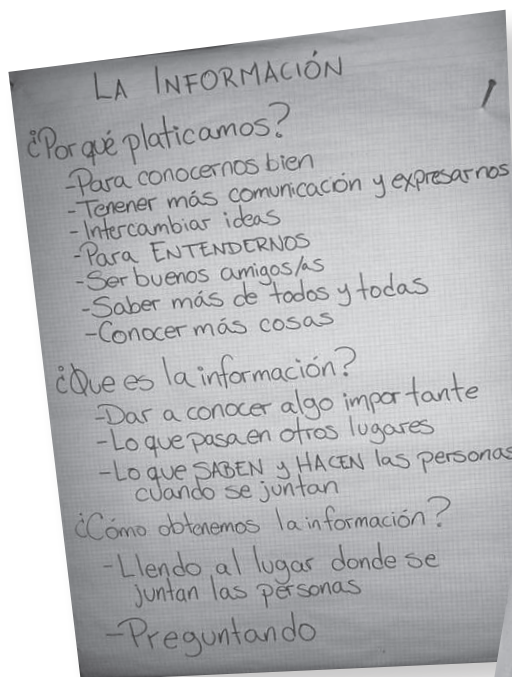 LA INFORMACIÓN
¿Por qué platicamos?
-Para conocernos bien
-Tenener más comunicación y expresarnos
-Intercambiar ideas
-Para ENTENDERNOS
-Ser buenos amigos/as
-Saber más de todos y todas
-Conocer más cosas
¿Que es la información?
-Dar a conocer algo importante
-Lo que pasa en otros lugares
-Lo que SABEN y HACEN las personas
cuando se juntan
¿Cómo obtenemos la información?
-Llendo al lugar donde se
juntan las personas
-Preguntando